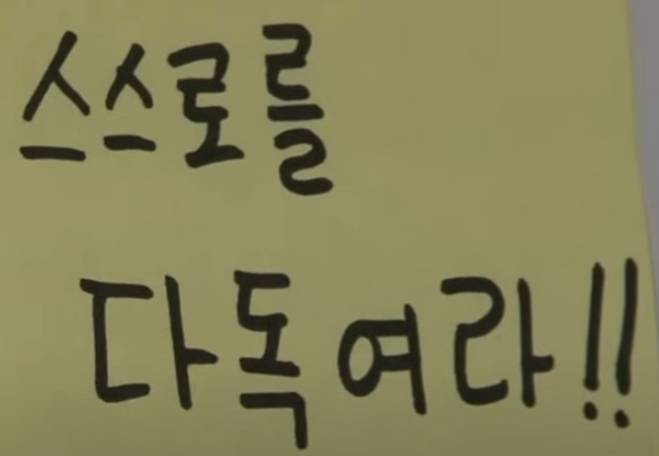 스스로를
다독여라!!